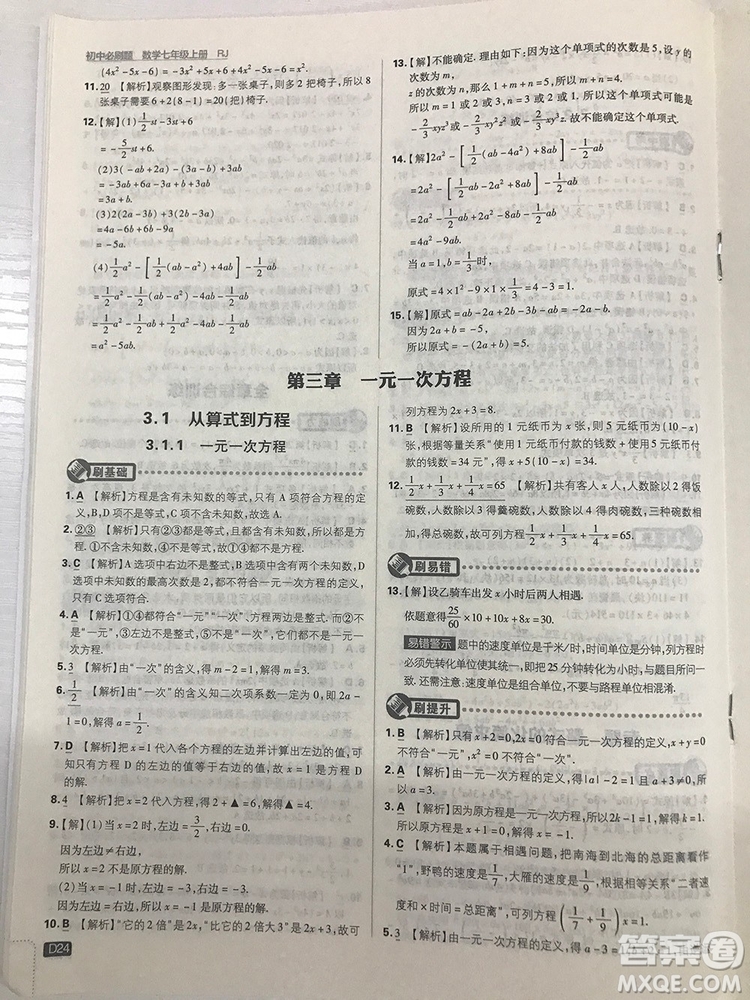 初中必刷题 数学七年级上册 RJ
(4x²-5x-6) = -3x²+5x+6-2x²=-5x²+5x+6.
11. 20 【解析】观察图形发现:多一张桌子,多2把椅子,所以8
张桌子需要6+2(8-1)=20把椅子.
12.【解】(1)1/2st-3st+6
=-5/2st+6.
(2)3(-ab+2a)-(3a-b)+3ab
=-3ab+6a-3a+b+3ab
=3a+b.
(3)2(2a-3b)+3(2b-3a)
=4a-6b+6b-9a
=-5a.
(4)1/2a²-[1/2(ab-a²)+4ab]-1/2ab
=1/2a²-1/2(ab-a²)-4ab-1/2ab
=1/2a²-1/2ab+1/2a²-4ab-1/2ab
=a²-5ab.
13.【解】不能确定.理由:因为这个单项式的次数是5,而x的
次数为m,
z的次数不确定,
所以m=1或m=2或m=3.所以这个单项式可能是
-2/3xyz³或-2/3xy²z²或-2/3xy³z.故不能确定这个单项式.
14.【解】2a²-[1/2(ab-4a²)+8ab]-1/2ab
=2a²-[1/2ab-2a²+8ab]-1/2ab
=2a²-1/2ab+2a²-8ab-1/2ab
=4a²-9ab.
当a=1,b=1/3时,
原式=4×1²-9×1×1/3=4-3=1.
15.【解】原式=ab-2a+2b-3b-ab=-2a-b.
因为2a+b=-5,
所以原式=-(2a+b)=5.
第三章 一元一次方程
3.1 从算式到方程
3.1.1 一元一次方程
刷基础
1. A 【解析】方程是含有未知数的等式,只有A项符合方程的定
义,B,D不含有未知数,C不是等式,故选A.
2. ②③ 【解析】②③都是等式,且都含有未知数,所以都是方
程.①不含有未知数,④不是等式,故①④不是方程.
3. C 【解析】A选项中右边不是整式,B选项中含有两个未知数,D
选项中未知数的最高次数是2,只有C符合一元一次方程的定义,
故选C.
4. A 【解析】①④都符合“一元”“一次”、方程两边是整式.而②不
是“一元”,③左边不是整式,⑤左边不是整式,⑥不是“一
次”,⑦不是“一元”,“一次”,它们都不是一元一次方程.故选A.
5. 3 【解析】由“一次”的含义,得m-2=1,解得m=3.
6. 1/2 【解析】由“一次”的含义知二次项系数一定为0,即2a-
1=0,解得a=1/2.
7. D 【解析】把x=1代入各个方程的左边并计算出结果,可
知只有方程D的左边的值等于右边的值,所以x=1是方程
D的解.
8. 4 【解析】把x=2代入方程,得2+▲=6,所以▲=4.
9.【解】(1)当x=2时,左边=3/2,右边=3.
因为左边≠右边,
所以x=2不是原方程的解.
(2)当x=-1时,左边=-3,右边=-3.
因为左边=右边,
所以x=-1是原方程的解.
10. B 【解析】“它的2倍”是“2x”,“比它的2倍大3”是“2x+3”,故可
列方程为2x+3=8.
11. B 【解析】设所用的1元纸币为x张,则5元纸币为(10-x)
张.根据等量关系“所用的1元纸币付款的钱数+5元纸币
付款的钱数=34元”,得x+5(10-x)=34.
12. 1/2x+1/3x+1/4x=65 【解析】共有客人x人,人数除以2得饭
碗数,人数除以3得羹碗数,人数除以4得肉碗数,三种碗数相加
得总碗数,可得方程1/2x+1/3x+1/4x=65.
刷易错
13.【解】设乙骑车出发x小时后两人相遇.
依题意得25/60×10+10x+8x=30.
易错警示 题中的速度单位是千米/时,时间单位是分钟,列方程时
必须先转化单位使其统一,即把25分钟转化为小时,与题目所问一
致.还需注意:速度单位是组合单位,不要与路程单位相混淆.
刷提升
1. B 【解析】只有x+2=0,0.2x=1符合一元一次方程的定义,x+y=0
有两个未知数,x²=0是“二次”.
2. A 【解析】由一元一次方程的定义,得|a|-2=1且a+3≠0,所
以a=3.
3. A 【解析】因为原方程是一元一次方程,所以2k-1=1,所以
k=1,所以原方程是x+1=0,所以x=-1.
4. C 【解析】本题属于相遇问题,把南海到北海的总距离看作
“1”,野鸭的速度是1/7,大雁的速度是1/9,根据相等关系“二者速
度和×时间=总距离”,可列方程(1/7+1/9)x=1.
5. 3 【解析】由一元一次方程的定义,得a-3=
D24
答案圈
MXQE.COM